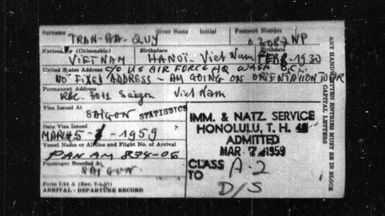 Surname Given Name Initial Passport Number
TRAN-BA-QUY
Nationality (Citizenship) Birthplace
VIETNAM HANOI - Viet Nam FEB 1930
United States Address C/O US AIR FORCE HQ WASH D.C.
NO FIXED ADDRESS - AM GOING ON ORIENTATION TOUR
Permanent Address
3011 Saigon Viet Nam
Visa Issued At
SAIGON STATISTICS
Date Visa Issued
MAR 5 - 1959
Vessel Name or Airline and Flight No. of Arrival
PAN AM
Passenger Boarded at
SAIGON
ARRIVAL - DEPARTURE RECORD
IMM. & NATZ. SERVICE
HONOLULU, T. H.
ADMITTED
MAR 7 1959
CLASS A-2
TO D/S
ANY HANDWRITTEN ENTRIES MUST BE IN BLOCK
CAPITAL LETTERS